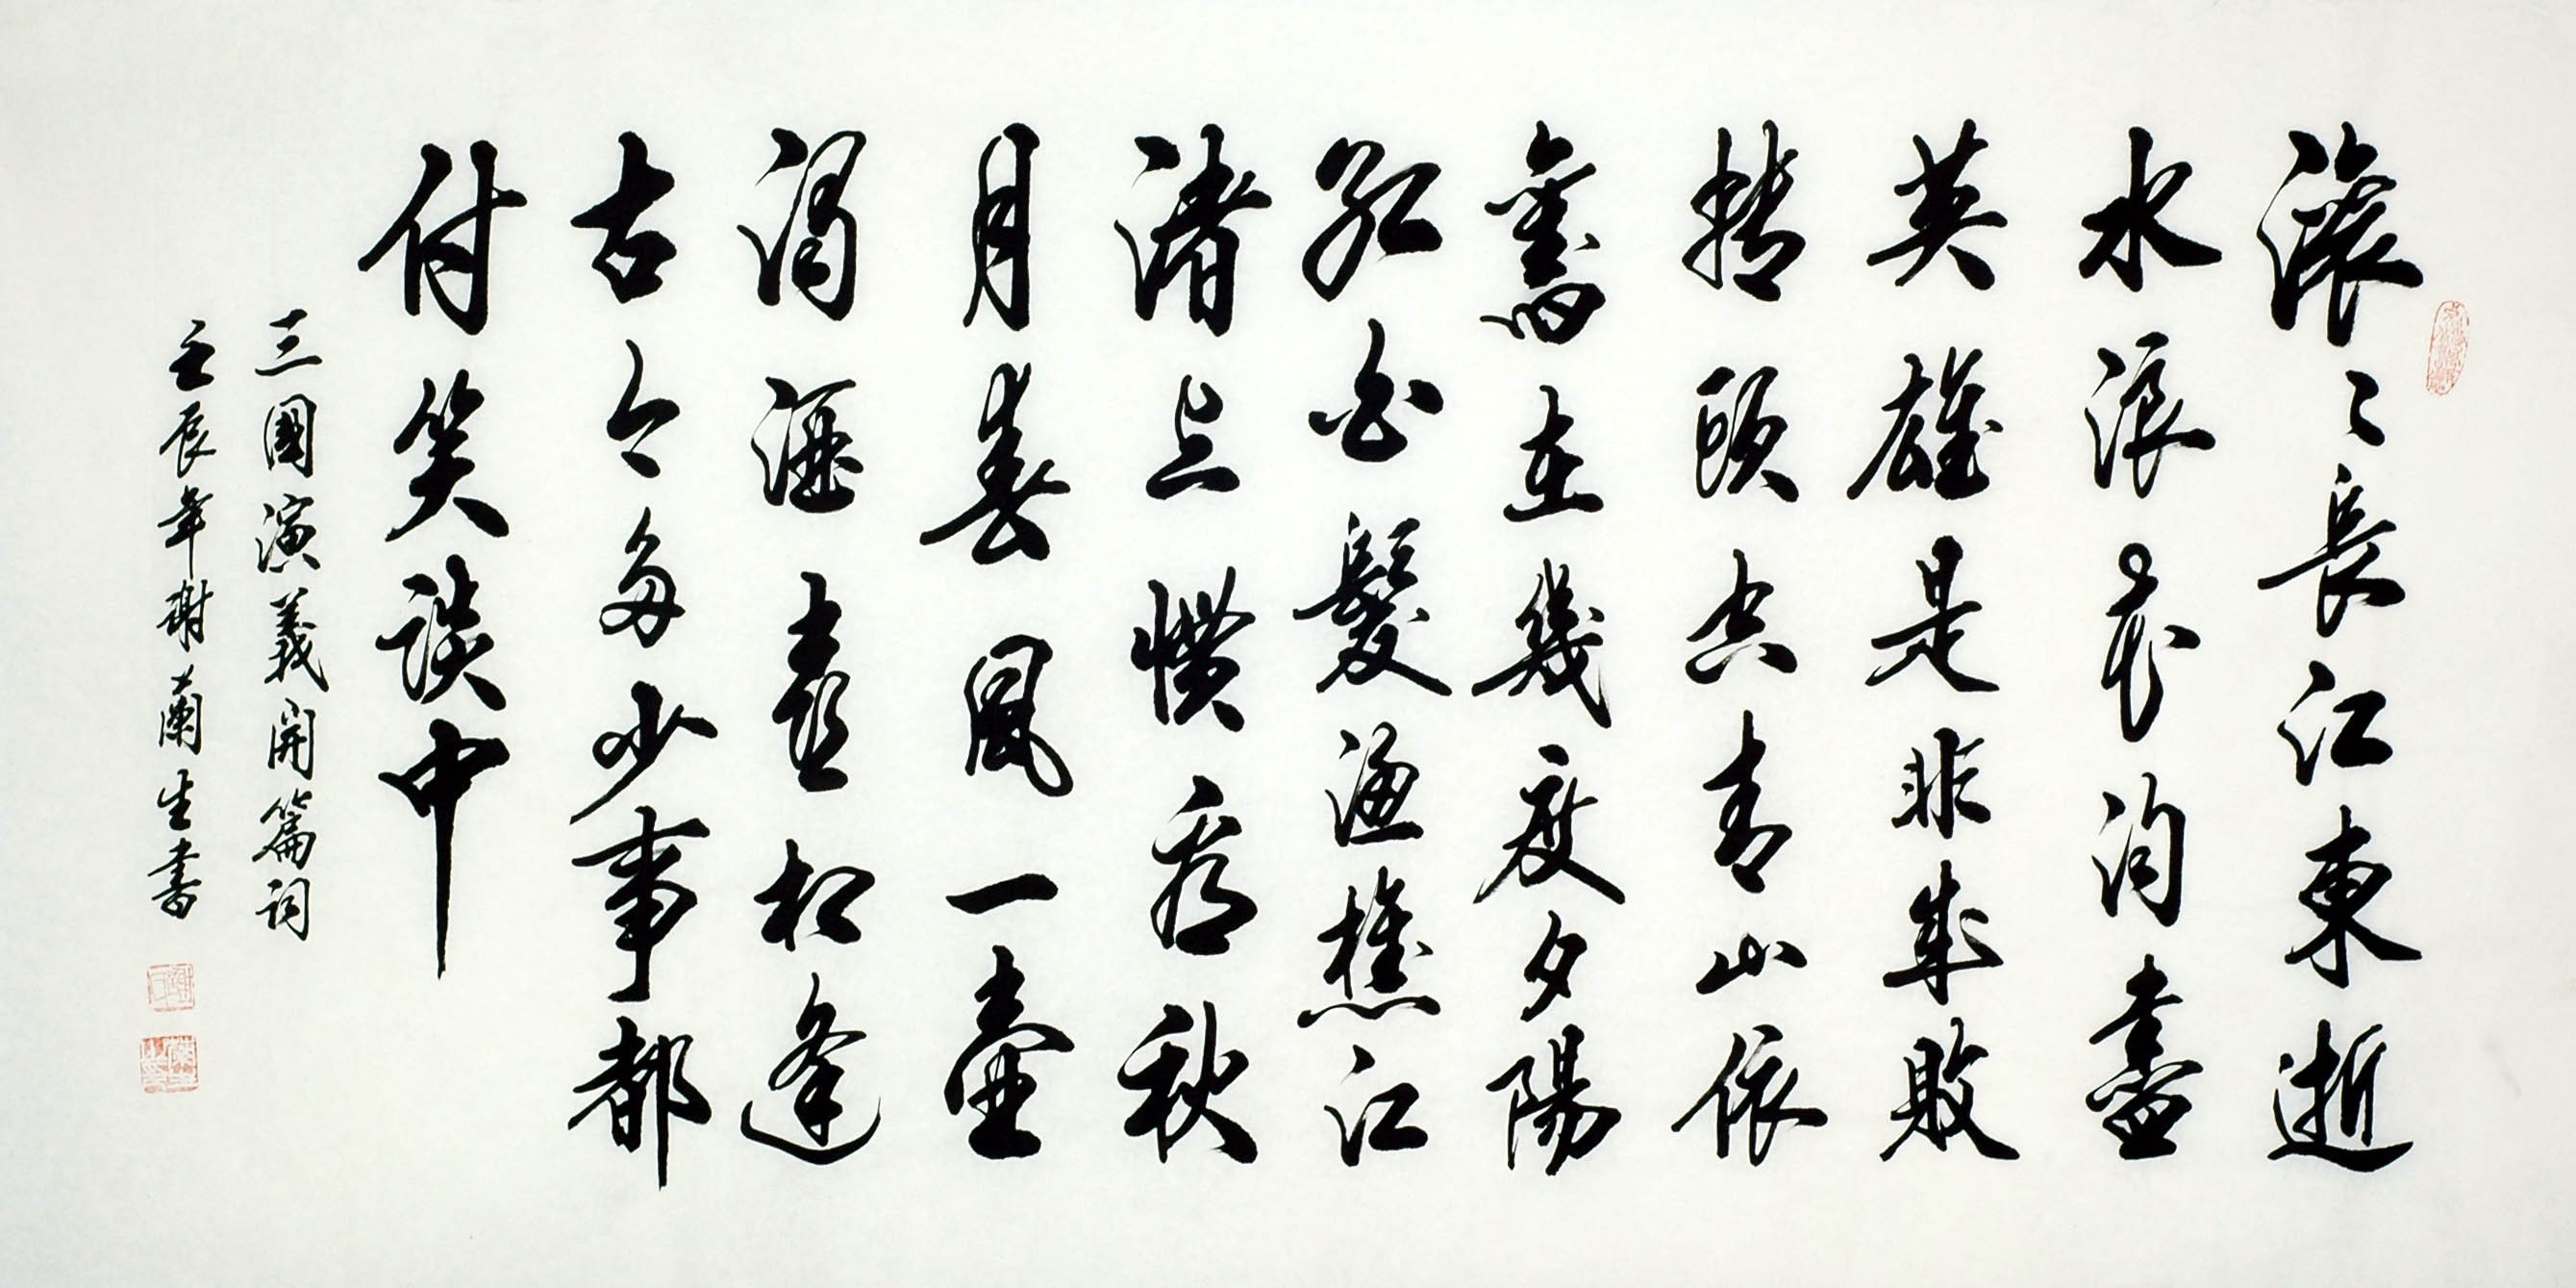 滾々長江東逝
水浪花淘盡
英雄是非成敗
轉頭空青山依
舊在幾度夕陽
紅白髮漁樵江
渚上慣看秋
月春風一壺
濁酒喜相逢
古今多少事都
付笑談中
三國演義開篇詞
壬辰年謝蘭生書